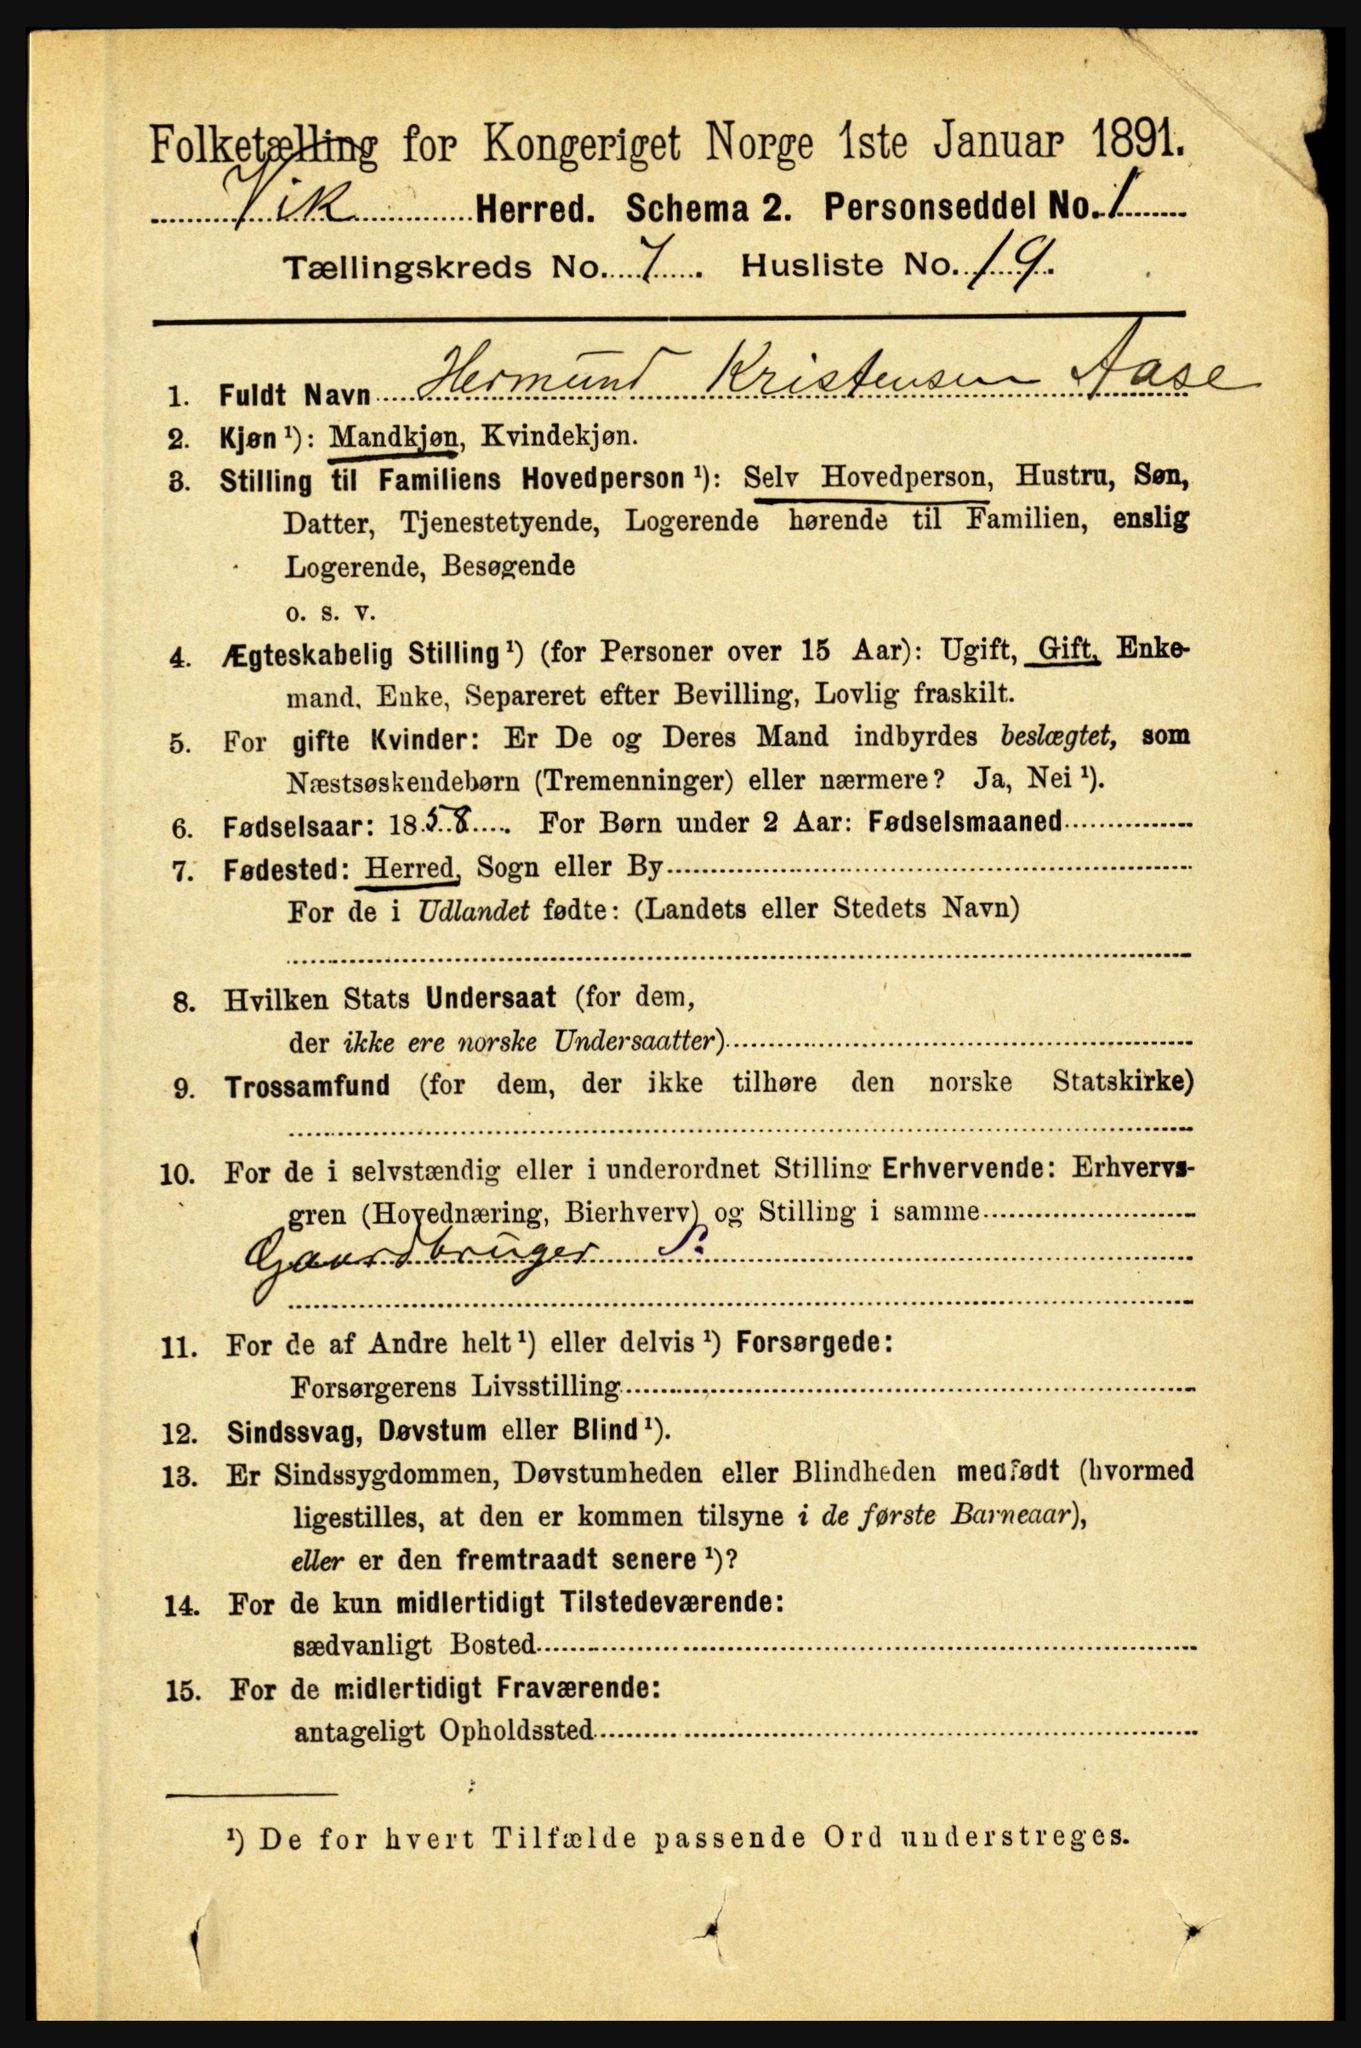 Folketælling for Kongeriget Norge 1ste Januar 1891.
Vik Herred. Schema 2. Personseddel No. 1
Tællingskreds No. 7. Husliste No. 19.
1. Fuldt Navn Hermund Kristensen Aase
2. Kjøn ¹): Mandkjøn, Kvindekjøn.
3. Stilling til Familiens Hovedperson ¹): Selv Hovedperson, Hustru, Søn,
Datter, Tjenestetyende, Logerende hørende til Familien, enslig
Logerende, Besøgende
o. s. v.
4. Ægteskabelig Stilling ¹) (for Personer over 15 Aar): Ugift, Gift, Enke-
mand, Enke, Separeret efter Bevilling, Lovlig fraskilt.
5. For gifte Kvinder: Er De og Deres Mand indbyrdes beslægtet, som
Næstsøskendebørn (Tremenninger) eller nærmere? Ja, Nei ¹).
6. Fødselsaar: 1858. For Børn under 2 Aar: Fødselsmaaned
7. Fødested: Herred, Sogn eller By
For de i Udlandet fødte: (Landets eller Stedets Navn)
8. Hvilken Stats Undersaat (for dem,
der ikke ere norske Undersaatter)
9. Trossamfund (for dem, der ikke tilhøre den norske Statskirke)
10. For de i selvstændig eller i underordnet Stilling Erhvervende: Erhvervs-
gren (Hovednæring, Bierhverv) og Stilling i samme
Gaardbruger S.
11. For de af Andre helt ¹) eller delvis ¹) Forsørgede:
Forsørgerens Livsstilling
12. Sindssvag, Døvstum eller Blind ¹).
13. Er Sindssygdommen, Døvstumheden eller Blindheden medfødt (hvormed
ligestilles, at den er kommen tilsyne i de første Barneaar),
eller er den fremtraadt senere ¹)?
14. For de kun midlertidigt Tilstedeværende:
sædvanligt Bosted
15. For de midlertidigt Fraværende:
antageligt Opholdssted
¹) De for hvert Tilfælde passende Ord understreges.